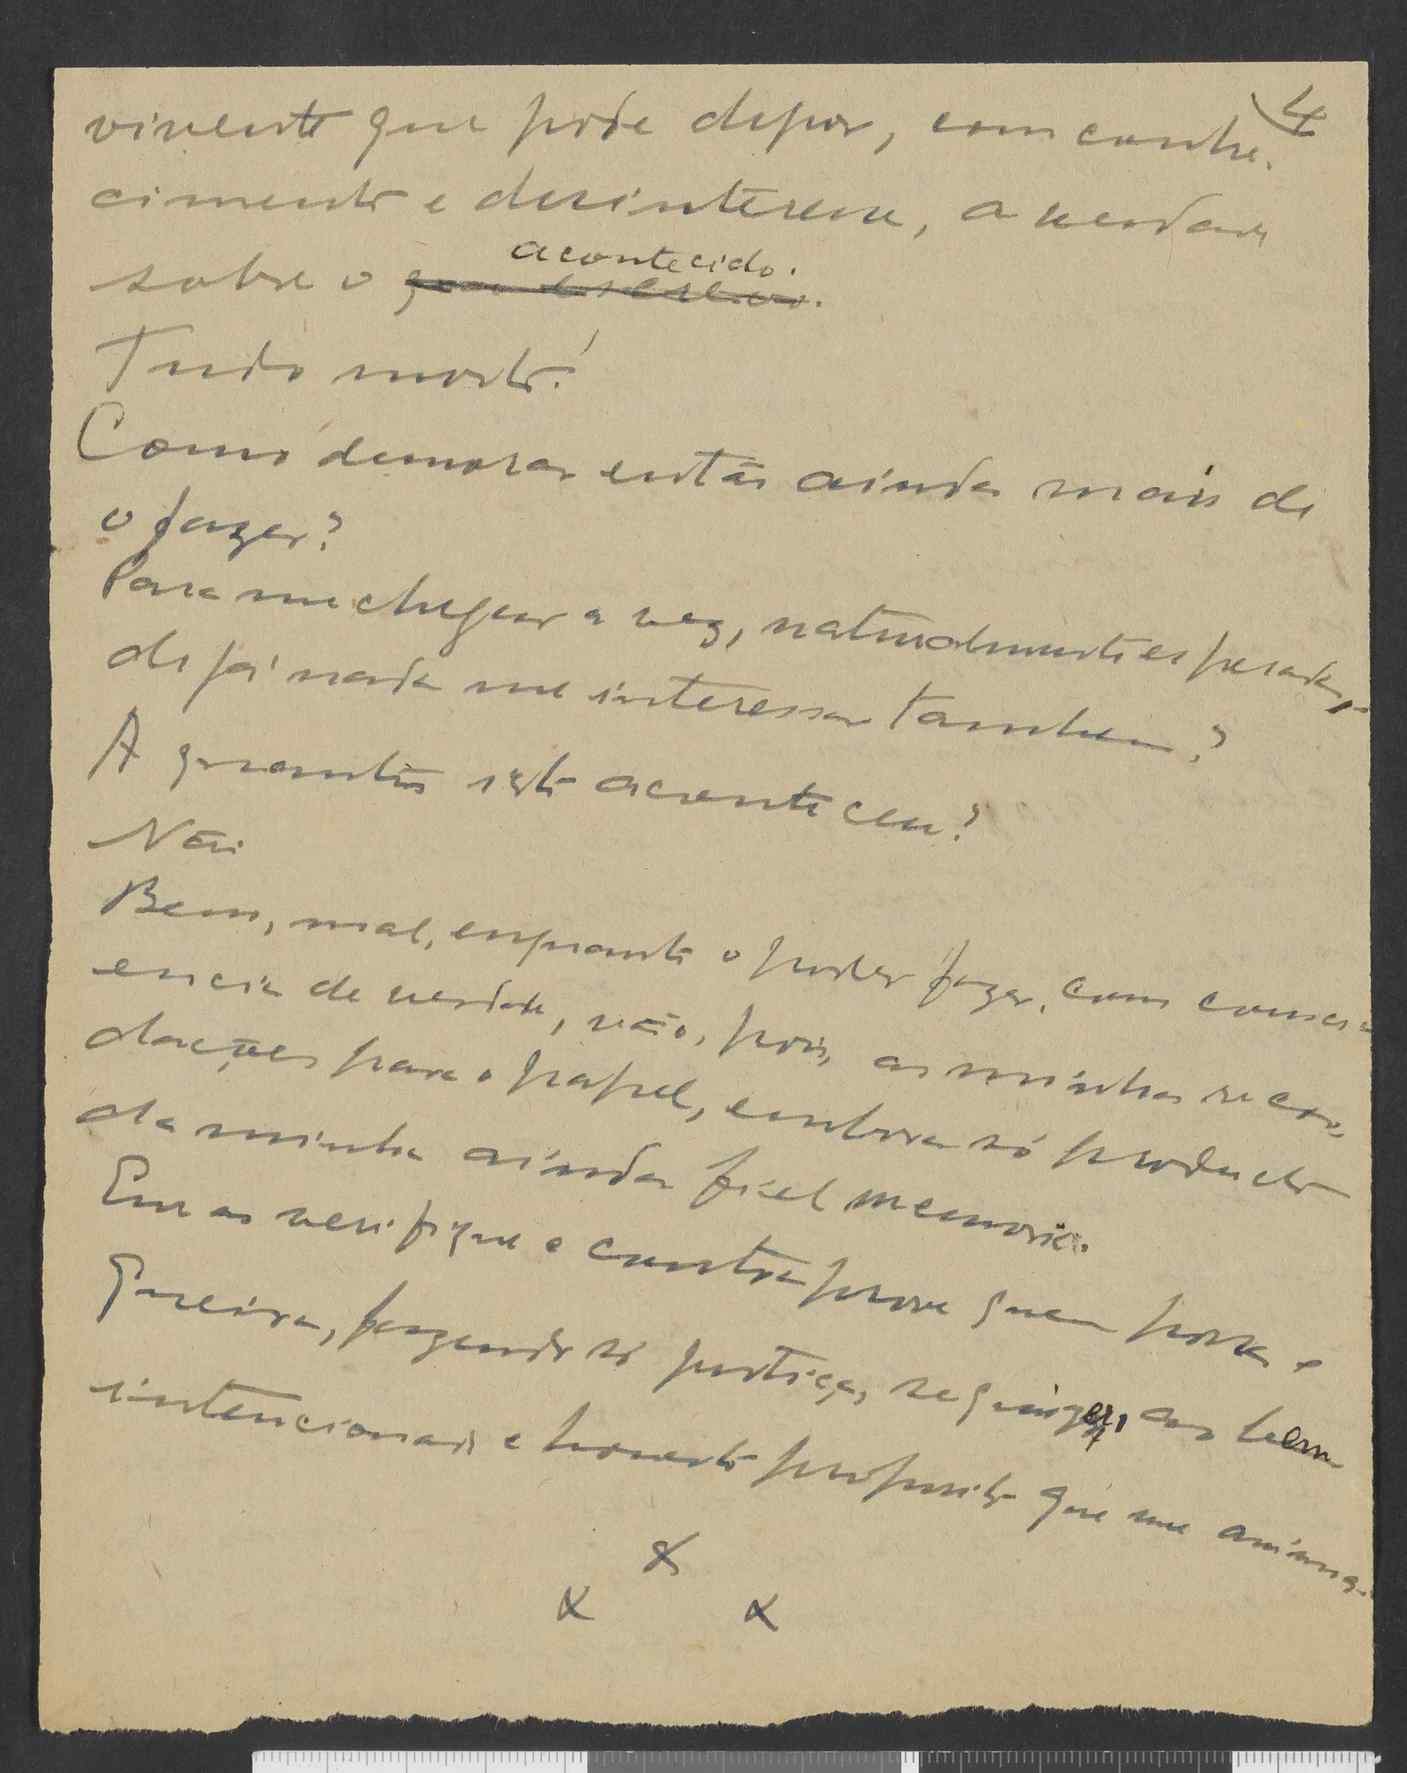 4
vivente que póde depor, com conhe-
cimento e desinteresse, a verdade
acontecido.
sobre o que descrevo.
Tudo morto!
Como demorar então ainda mais de
o fazer?
Para me chegar a vez, naturalmente esperada,
de já nada me interessar tambem?
A quantos isto aconteceu?
Não
Bem, mal, enquanto o poder fazer, com consci-
encia de verdade, vão, pois, as minhas recor-
dações para o papel, embora só producto
da minha ainda fiel memoria.
Que as verifique e contraprove quem possa e
queira, fazendo só justiça, se quizer, ao bem
intencionado e honesto proposito que me anima.
x
x x